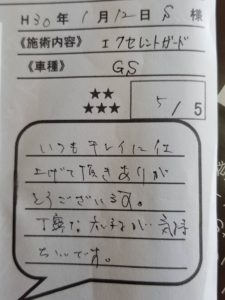 H30年 1月12日 S 様
《施術内容》 エクセレントガード
《車種》 GS
★★
★★★
5/5
いつもキレイに仕
上げて頂きありが
とうございます。
丁寧な 気持
ちいいです。